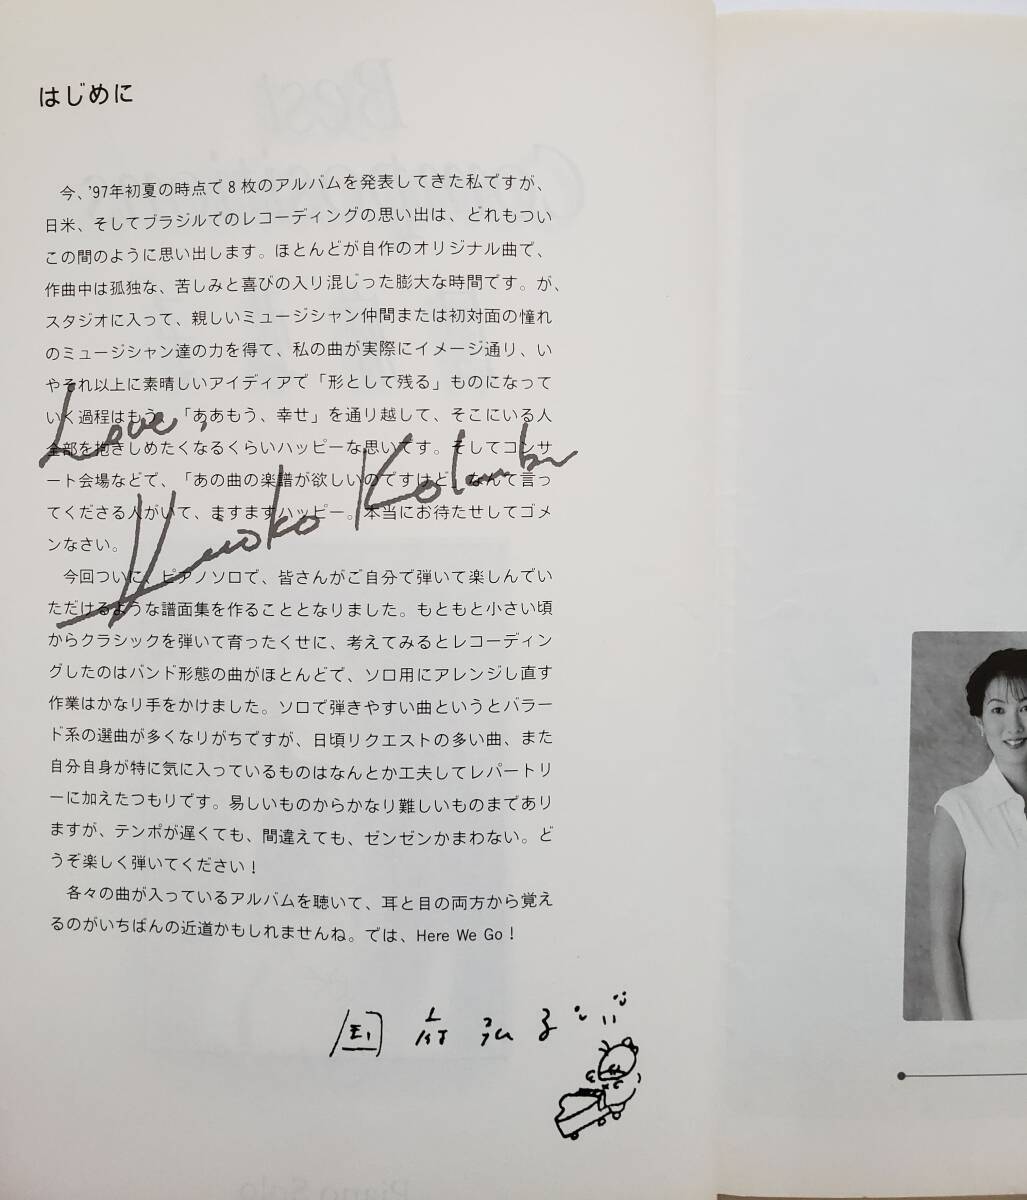 はじめに
今、'97年初夏の時点で8枚のアルバムを発表してきた私ですが、
日米、そしてブラジルでのレコーディングの思い出は、どれもつい
この間のように思い出します。ほとんどが自作のオリジナル曲で、
作曲中は孤独な、苦しみと喜びの入り混じった膨大な時間です。が、
スタジオに入って、親しいミュージシャン仲間または初対面の憧れ
のミュージシャン達の力を得て、私の曲が実際にイメージ通り、い
やそれ以上に素晴しいアイディアで「形として残る」ものになって
いく過程はもう、「ああもう、幸せ」を通り越して、そこにいる人
全部を抱きしめたくなるくらいハッピーな思いです。そしてコンサ
ート会場などで、「あの曲の楽譜が欲しいのですけど」なんて言っ
てくださる人がいて、ますますハッピー。本当にお待たせしてゴメ
ンなさい。
今回ついに、ピアノソロで、皆さんがご自分で弾いて楽しんでい
ただけるような譜面集を作ることとなりました。もともと小さい頃
からクラシックを弾いて育ったくせに、考えてみるとレコーディン
グしたのはバンド形態の曲がほとんどで、ソロ用にアレンジし直す
作業はかなり手をかけました。ソロで弾きやすい曲というとバラー
ド系の選曲が多くなりがちですが、日頃リクエストの多い曲、また
自分自身が特に気に入っているものはなんとか工夫してレパートリ
ーに加えたつもりです。易しいものからかなり難しいものまであり
ますが、テンポが遅くても、間違えても、ゼンゼンかまわない。ど
うぞ楽しく弾いてください！
各々の曲が入っているアルバムを聴いて、耳と目の両方から覚え
るのがいちばんの近道かもしれませんね。では、Here We Go！
Love,
Kuniko Kokubu
国府弘子
Best
Piano Solo